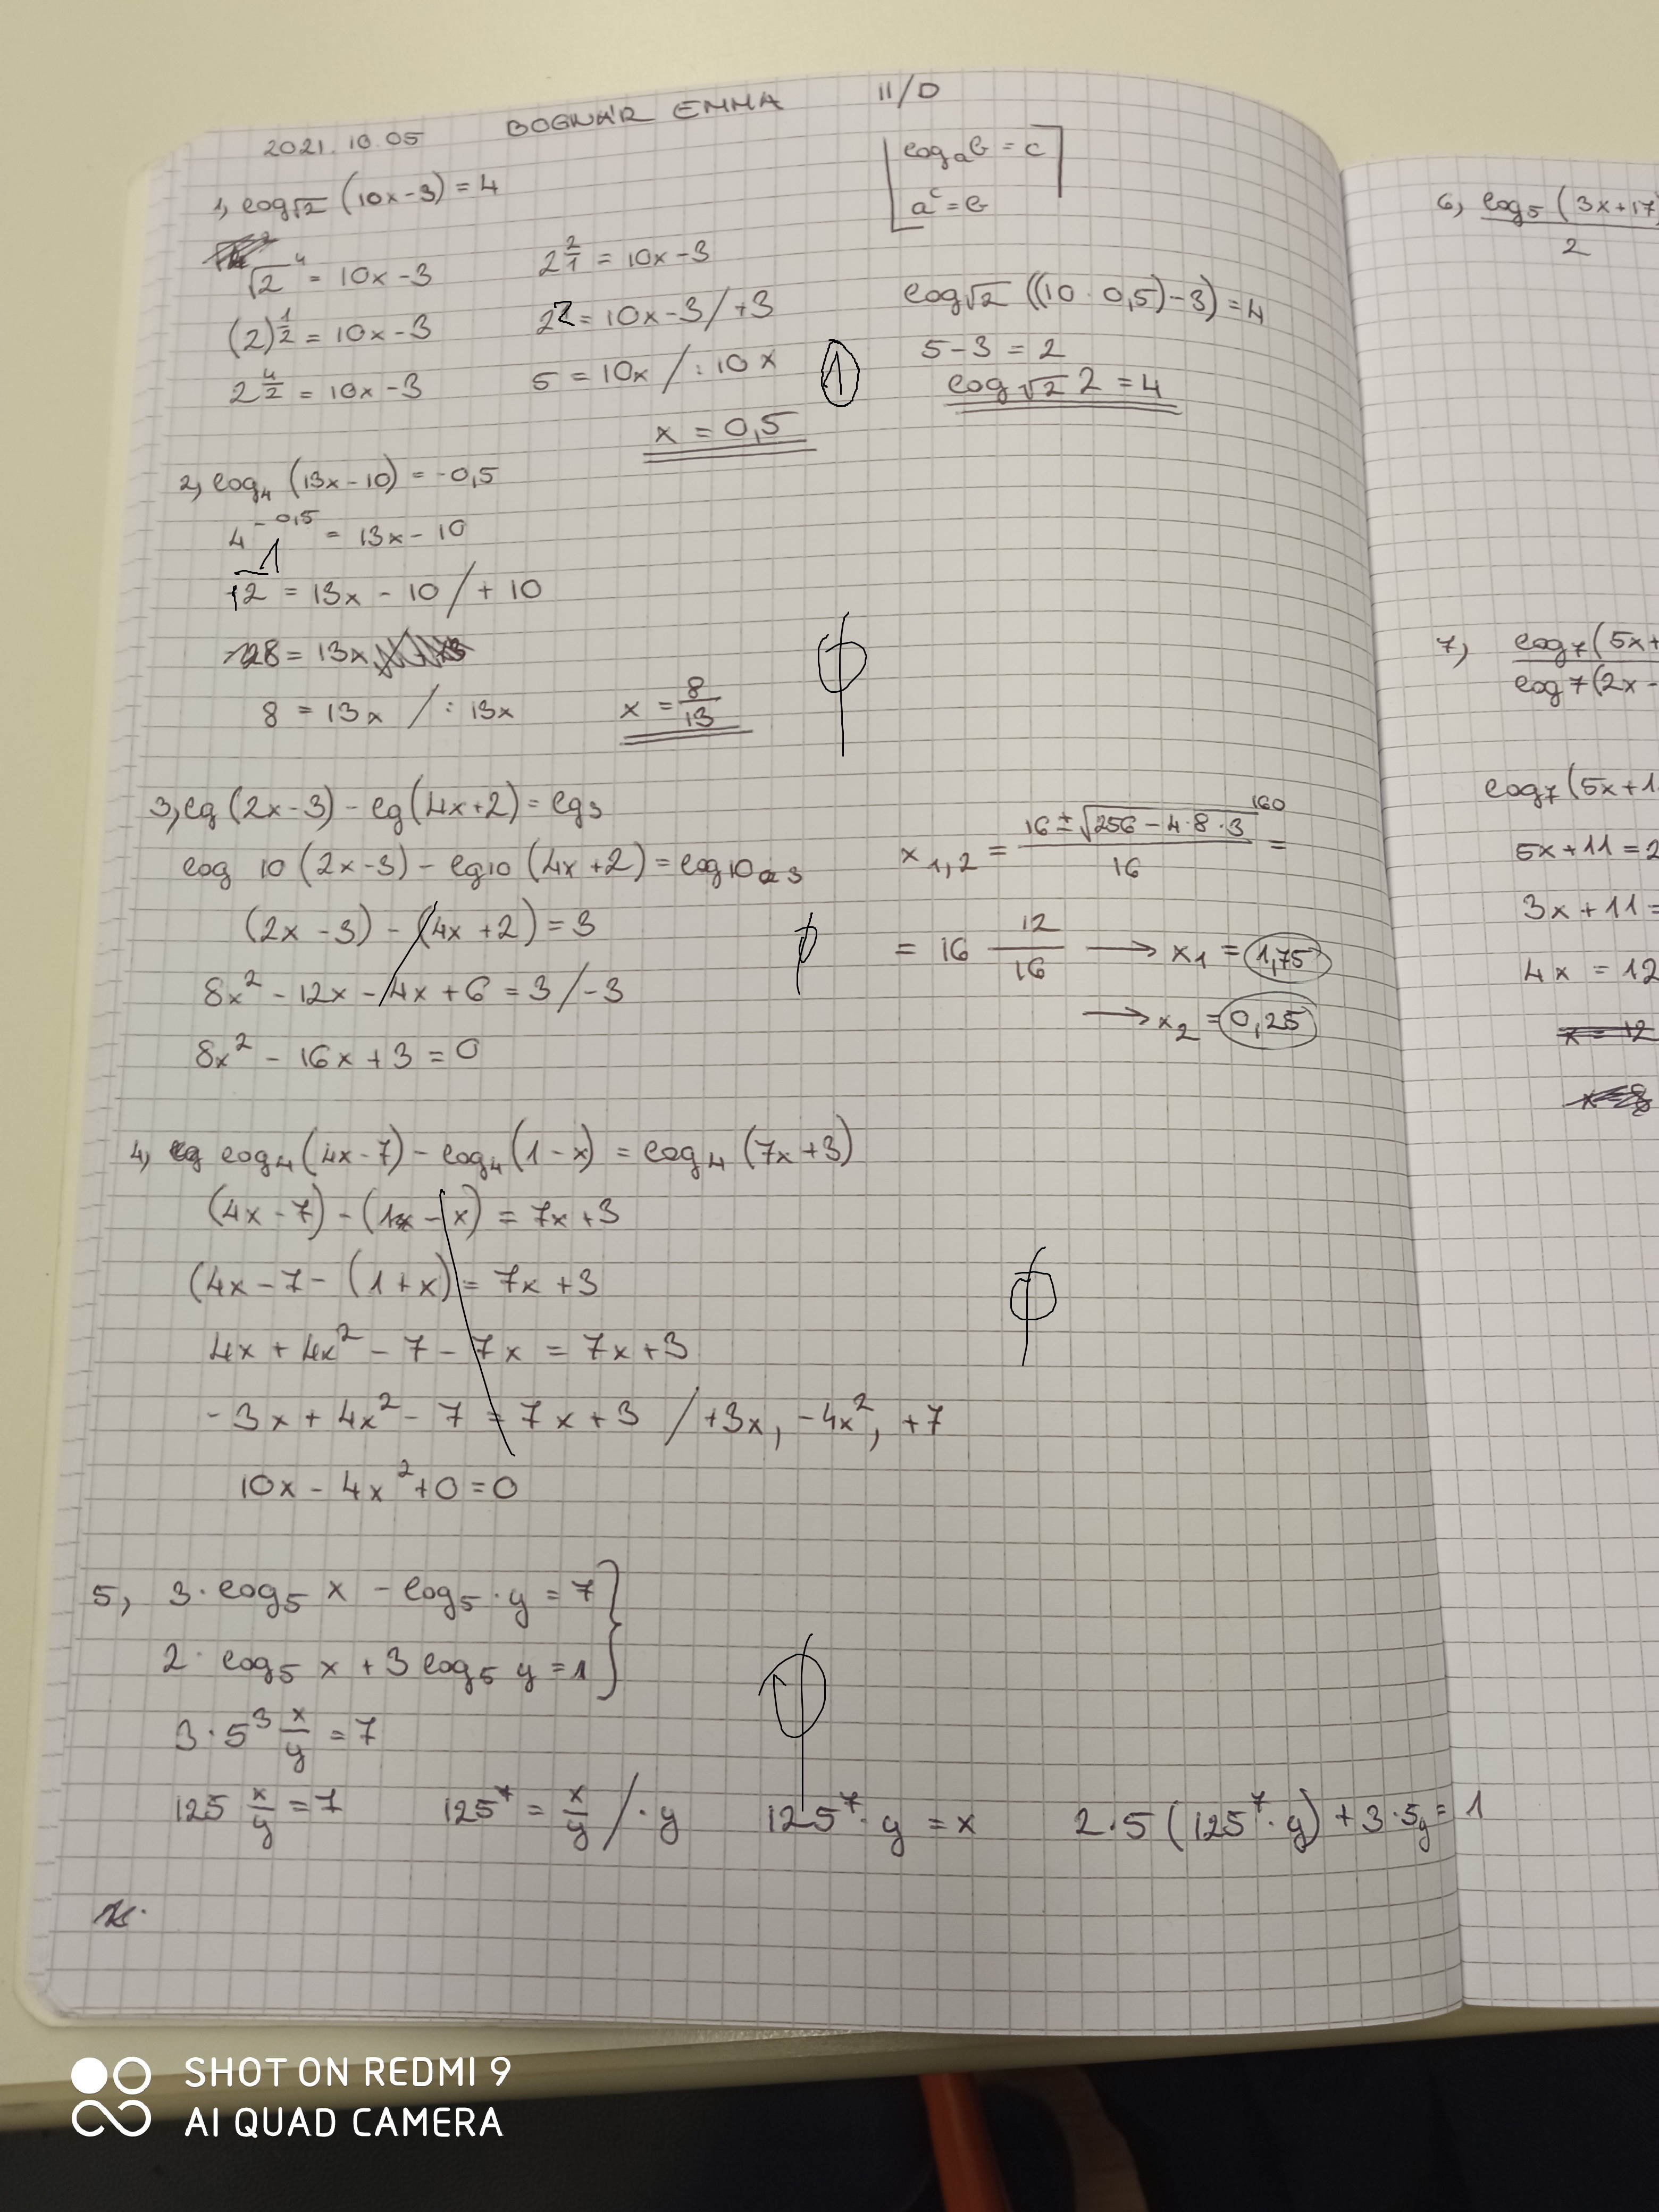 2021.10.05 BOGNÁR EMMA 11/D
log_a b = c
a^c = b
1, log√2 (10x-3) = 4
√2^4 = 10x-3
(2)^1/2 = 10x-3
2^4/2 = 10x-3
2^2/1 = 10x-3
2^2 = 10x-3 /+3
5 = 10x /:10x
x = 0,5
①
log√2 ((10·0,5)-3) = 4
5-3 = 2
log√2 2 = 4
2, log₄ (13x-10) = -0,5
4^-0,5 = 13x-10
1
-2 = 13x - 10 /+10
8 = 13x
8 = 13x /:13x
x = 8/13
3, lg(2x-3) - lg(4x+2) = lg3
log 10 (2x-3) - lg10 (4x+2) = log10 3
(2x-3) - (4x+2) = 3
8x² - 12x - 4x + 6 = 3 /-3
8x² - 16x + 3 = 0
x₁,₂ = 16 ± √256 - 4·8·3 / 16 =
160
= 16 12/16 → x₁ = 1,75
→ x₂ = 0,25
4, log₄(4x-7) - log₄(1-x) = log₄(7x+3)
(4x-7) - (1-x) = 7x+3
(4x-7-(1+x) = 7x+3
4x + 4x² - 7 - 7x = 7x+3
-3x + 4x² - 7 = 7x + 3 /+3x, -4x², +7
10x - 4x² + 0 = 0
5, 3·log₅ x - log₅·y = 7
2·log₅ x + 3 log₅ y = 1
3·5³ x/y = 7
125 x/y = 7 125⁷ = x/y /·y 125⁷·y = x 2·5(125⁷·y) + 3·5y = 1
6, log₅(3x+17)
2
7, log₇(5x+
log7(2x-
log₇(5x+1
5x+11=2
3x+11=
4x = 12
x = 12
SHOT ON REDMI 9
AI QUAD CAMERA